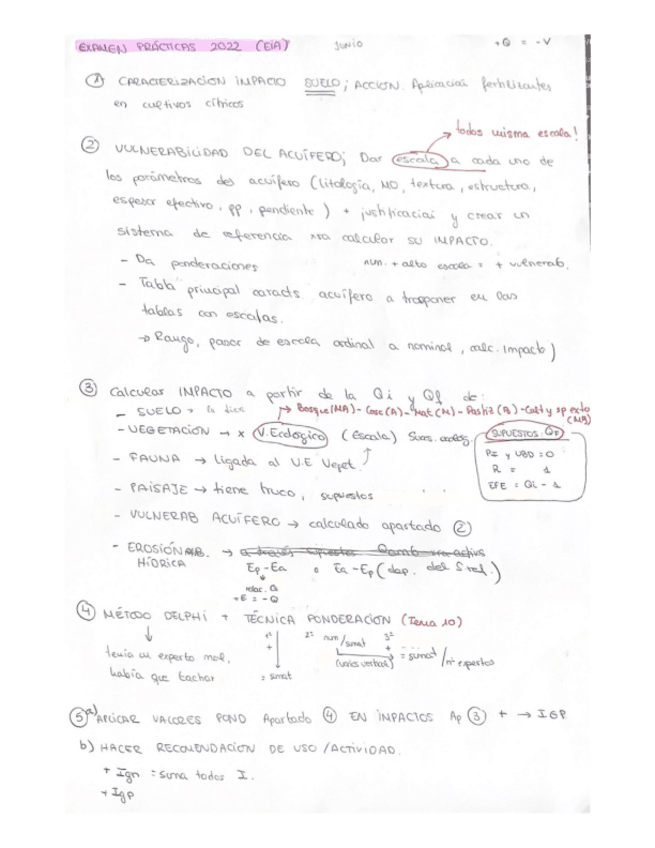 EXAMEN PRÁCTICAS 2022 (EIA) JUNIO +Q = -V
① CARACTERIZACIÓN IMPACTO SUELO; ACCION. Aplicación fertilizantes
en cultivos cítricos
todos misma escala!
② VULNERABILIDAD DEL ACUÍFERO; Dar escala a cada uno de
los parámetros del acuífero (litología, MO, textura, estructura,
espesor efectivo, pp, pendiente) + justificación y crear un
sistema de referencia xra calcular su IMPACTO.
- Da ponderaciones num. + alto escala = + vulnerab.
- Tabla principal caracts. acuífero a trasponer en las
tablas con escalas.
→ Rango, pasar de escala ordinal a nominal, calc. Impacto)
③ Calcular IMPACTO a partir de la Qi y Qf de:
- SUELO → la dice → Bosque(MA) - Cosc(A) - Mat(M) - Pastiz(B) - Cult y sp exto (MB)
- VEGETACIÓN → x V. Ecológico (escala)
SUPUESTOS: Qf
PI y UBD = 0
R = 1
EFE = Qi - 1
- FAUNA → ligada al V.E Veget.
- PAISAJE → tiene truco, supuestos
- VULNERAB ACUÍFERO → calculado apartado ②
- EROSIÓN HÍDRICA →
Ep - Ea o Ea - Ep (dep. del S ref.)
relac. Q
+E = -Q
④ MÉTODO DELPHI + TÉCNICA PONDERACIÓN (Tema 10)
tenía un experto mal,
había que tachar
1º + = sumat
2º num/sumat 3º +
= sumat / nº expertos
⑤ a) APLICAR VALORES POND Apartado ④ EN IMPACTOS Ap ③ + → IGP
b) HACER RECOMENDACIÓN DE USO/ACTIVIDAD.
+ Ign = suma todos I.
+ Igp